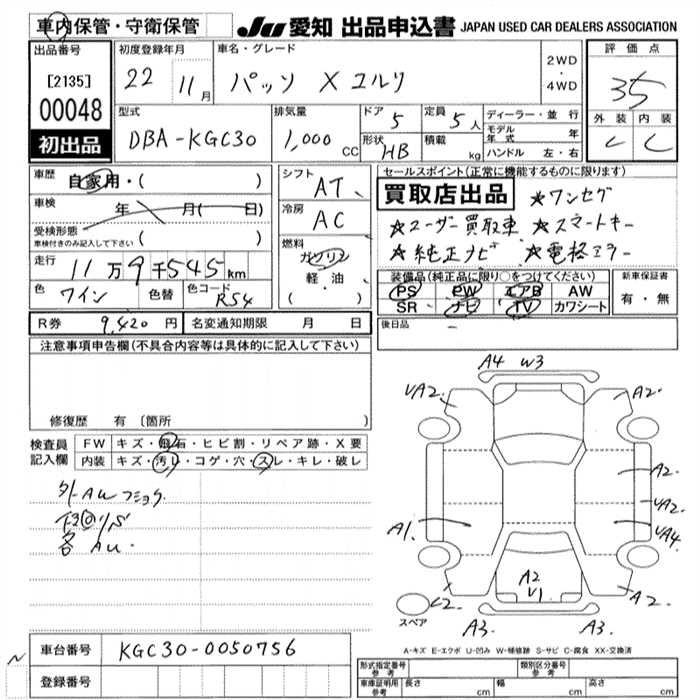 車内保管・守衛保管 JU 愛知 出品申込書 JAPAN USED CAR DEALERS ASSOCIATION
出品番号 初度登録年月 車名・グレード 評価点
[2135] 22 11月 パッソ X ユルリ 2WD・4WD 3.5
00048 型式 排気量 ドア 5 定員 5人 ディーラー・並行 外装 内装
DBA-KGC30 1,000 CC 形状 HB 積載 kg モデル年式 年 C C
初出品 ハンドル 左・右
車歴 自家用・( ) シフト AT セールスポイント(正常に機能するものに限ります)
車検 年 月( 日) 冷房 AC 買取店出品 ☆ワンセグ
受検形態 ☆ユーザー買取車 ☆スマートキー
車検付きのみ記入して下さい ( ) 燃料 ガソリン ☆純正ナビ ☆電格ミラー
走行 11万9千545km 軽・油 装備品(純正品に限り○をつけてください) 新車保証書
色 ワイン 色替 色コード R54 ( ) PS PW エアB AW 有・無
SR ナビ TV カワシート
R券 9,420円 名変通知期限 月 日 後日品 -
注意事項申告欄(不具合内容等は具体的に記入して下さい)
修復歴 有 〔箇所 〕
検査員記入欄 FW キズ・飛石・ヒビ割・リペア跡・X要
内装 キズ・汚レ・コゲ・穴・スレ・キレ・破レ
各AU
A4 W3
VA2 A2
A2
VA2
A1 VA4
A2
V1
A2
スペア A3 A3
A-キズ E-エクボ U-凹み W-補修跡 S-サビ C-腐食 XX-交換済
車台番号 KGC30-0050756
登録番号
形式指定番号 参考 類別区分番号 参考
車庫証明用 参考 長さ cm 幅 cm 高さ cm